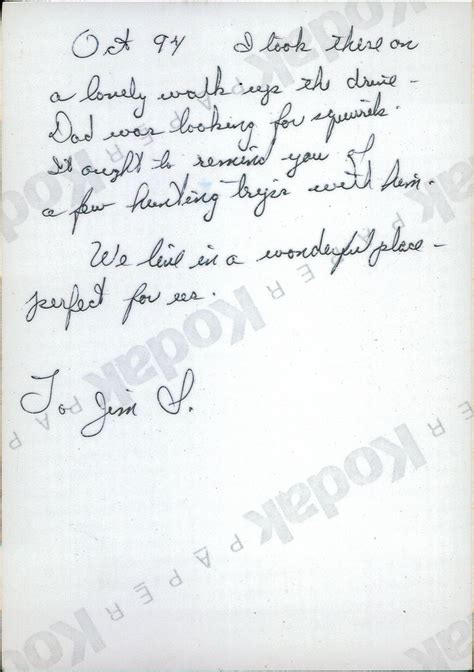 Oct 94 I took there on
a lovely walk up th drive -
Dad was looking for squirrels.
It ought to remind you of
a few hunting trips with him.
We live in a wonderful place -
perfect for us.
To Jim S.
Kodak PAPER
Kodak PAPER
Kodak PAPER
Kodak PAPER